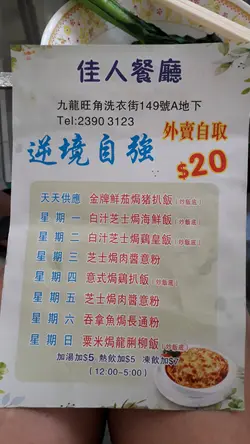 佳人餐廳
九龍旺角洗衣街149號A地下
Tel:2390 3123
外賣自取
逆境自強
$20
天天供應 金牌鮮茄焗豬扒飯(炒飯底)
星期一 白汁芝士焗海鮮飯(炒飯底)
星期二 白汁芝士焗雞皇飯(炒飯底)
星期三 芝士焗肉醬意粉
星期四 意式焗雞扒飯(炒飯底)
星期五 芝士焗肉醬意粉
星期六 吞拿魚焗長通粉
星期日 粟米焗龍脷柳飯(炒飯底)
加湯加$5 熱飲加$5 凍飲加$7
(12:00-5:00)